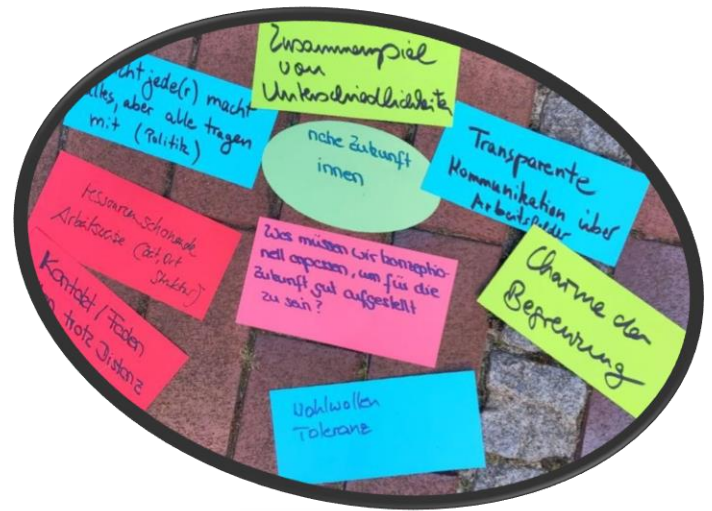 Zusammenspiel
von
Unterschiedlichkeiten
cht jede(r) macht
alles, aber alle tragen
mit (Politik)
Zukunft
innen
Transparente
Kommunikation über
Arbeitsfelder
ressourcenschonende
Arbeitsweise (Zeit, Ort
Struktur)
Was müssen wir konzeptio-
nell anpassen, um für die
Zukunft gut aufgestellt
zu sein?
Charme der
Begrenzung
Kontakt / Faden
trotz Distanz
Wohlwollen
Toleranz